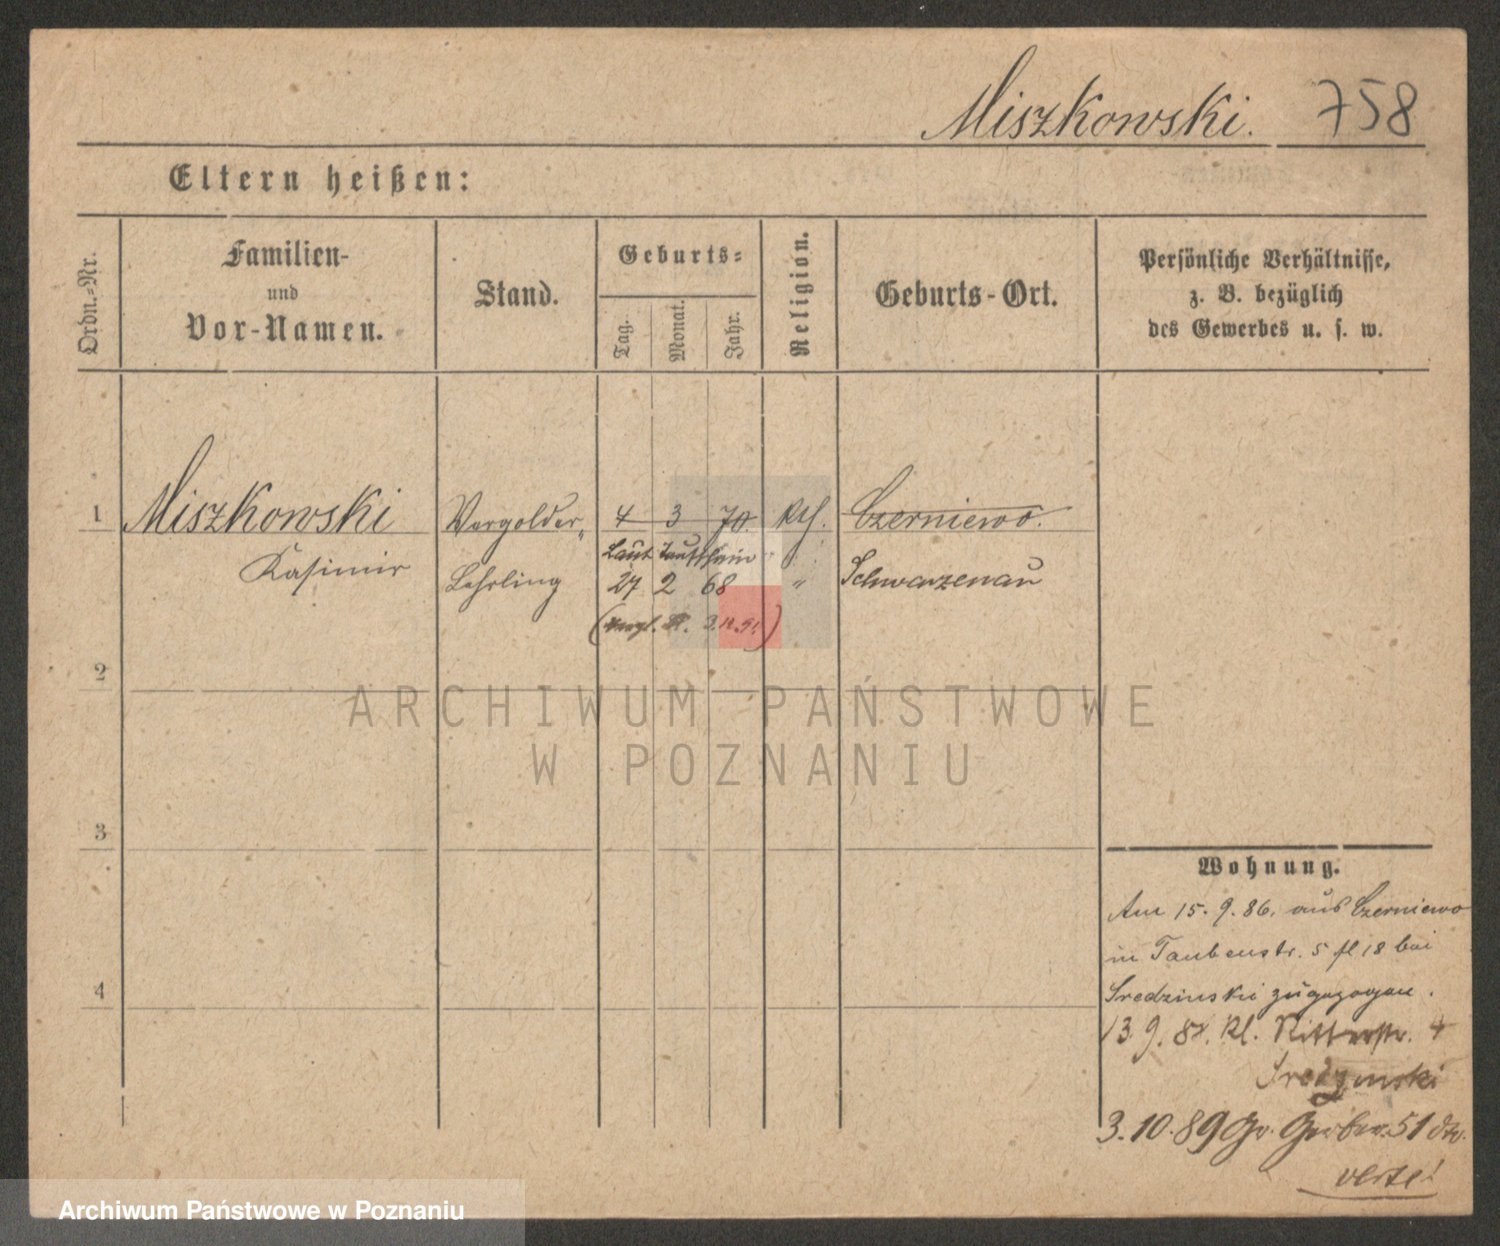 Miszkowski. 758
Eltern heißen:
Ordn.-Nr.
Familien-
und
Vor-Namen.
Stand.
Geburts-
Tag.
Monat.
Jahr.
Religion.
Geburts-Ort.
Persönliche Verhältnisse,
z. B. bezüglich
des Gewerbes u. s. w.
1 Miszkowski Vergolder- 4 3 70. Kth. Czerniewo.
Laut Taufschein "
Kasimir Lehrling 27 2 68 " Schwarzenau
(vergl. 91)
2
ARCHIWUM PAŃSTWOWE
W POZNANIU
3
Wohnung.
Am 15. 9. 86. aus Czerniewo
in Taubenstr. 5 fl 18 bei
4
Sredzinski zugezogen.
13 9. 87. Kl. Ritterstr. 4
Sredzinski
3. 10. 89 Gr. Gerber. 51
verte!
Archiwum Państwowe w Poznaniu